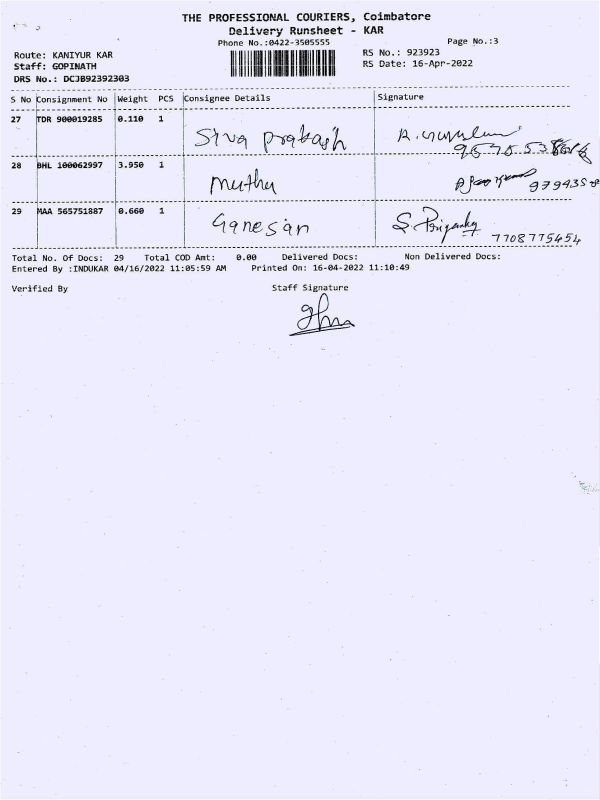 THE PROFESSIONAL COURIERS, Coimbatore
Delivery Runsheet - KAR
Phone No.:0422-3505555
Page No.:3
Route: KANIYUR KAR
RS No.: 923923
Staff: GOPINATH
RS Date: 16-Apr-2022
DRS No.: DCJB92392303
S No Consignment No Weight PCS Consignee Details Signature
27 TDR 900019285 0.110 1
Siva prakash
28 BHL 100062997 3.950 1
Muthu
29 MAA 565751887 0.660 1
Ganesan S. Priyanka
7708775454
Total No. Of Docs: 29 Total COD Amt: 0.00 Delivered Docs: Non Delivered Docs:
Entered By :INDUKAR 04/16/2022 11:05:59 AM Printed On: 16-04-2022 11:10:49
Verified By Staff Signature